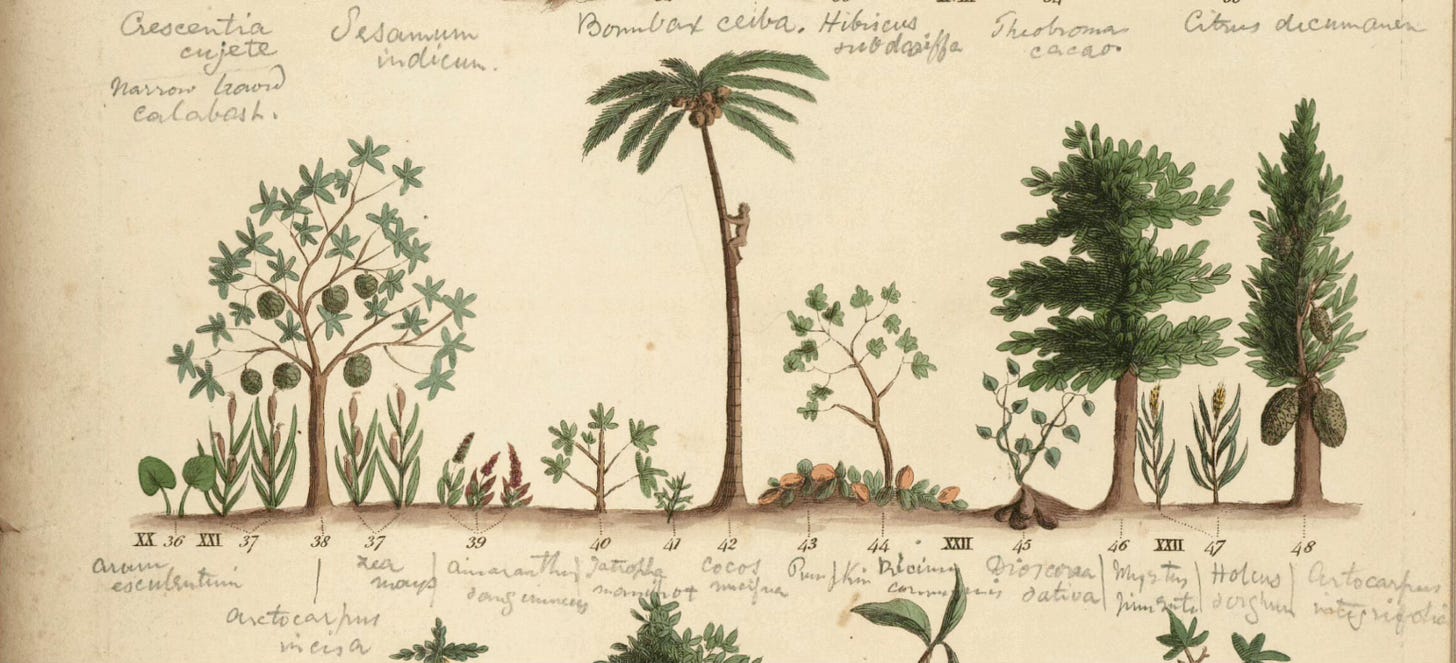 Crescentia
cujete
Narrow leav'd
calabash.
Sesamum
indicum.
Bombax ceiba.
Hibiscus
subdariffa
Theobroma
cacao.
Citrus decumana
XX 36 XXI 37 38 37 39 40 41 42 43 44 XXII 45 46 XXII 47 48
Arum
esculentum
Artocarpus
incisa
Zea
mays
Amaranthus
sanguineus
Jatropha
manihot
Cocos
nucifera
Pumpkin
Ricinus
communis
Dioscorea
sativa
Myrtus
Pimenta
Holcus
sorghum
Artocarpus
integrifolia